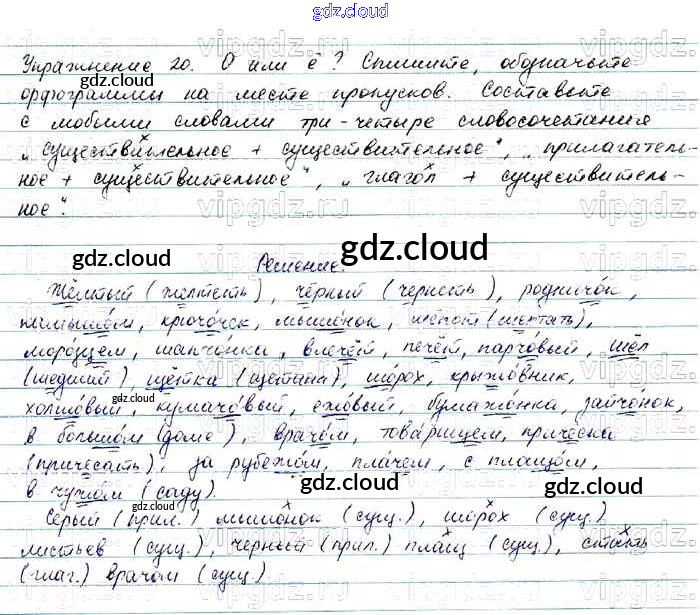 gdz.cloud
Упражнение 20. О или ё? Спишите, обозначьте
орфограммы на месте пропусков. Составьте
с любыми словами три-четыре словосочетания
„существительное + существительное", „прилагатель-
ное + существительное", „глагол + существитель-
ное".
Решение.
Жёлтый (желтеть), чёрный (чернеть), родничок,
камышом, крючочек, мышонок, шёпот (шептать),
морозцем, шапчонки, влечёт, печёт, парчовый, шёл
(шедший), щётка (щетина), шорох, крыжовник,
холщовый, кумачовый, ежовый, бумажонка, зайчонок,
в большом (доме), врачом, товарищем, причёска
(причесать), за рубежом, плачем, с плащом,
в чужом (саду).
Серый (прил.) мышонок (сущ.), шорох (сущ.)
листьев (сущ.), черный (прил.) плащ (сущ.), стать
(глаг.) врачом (сущ.)